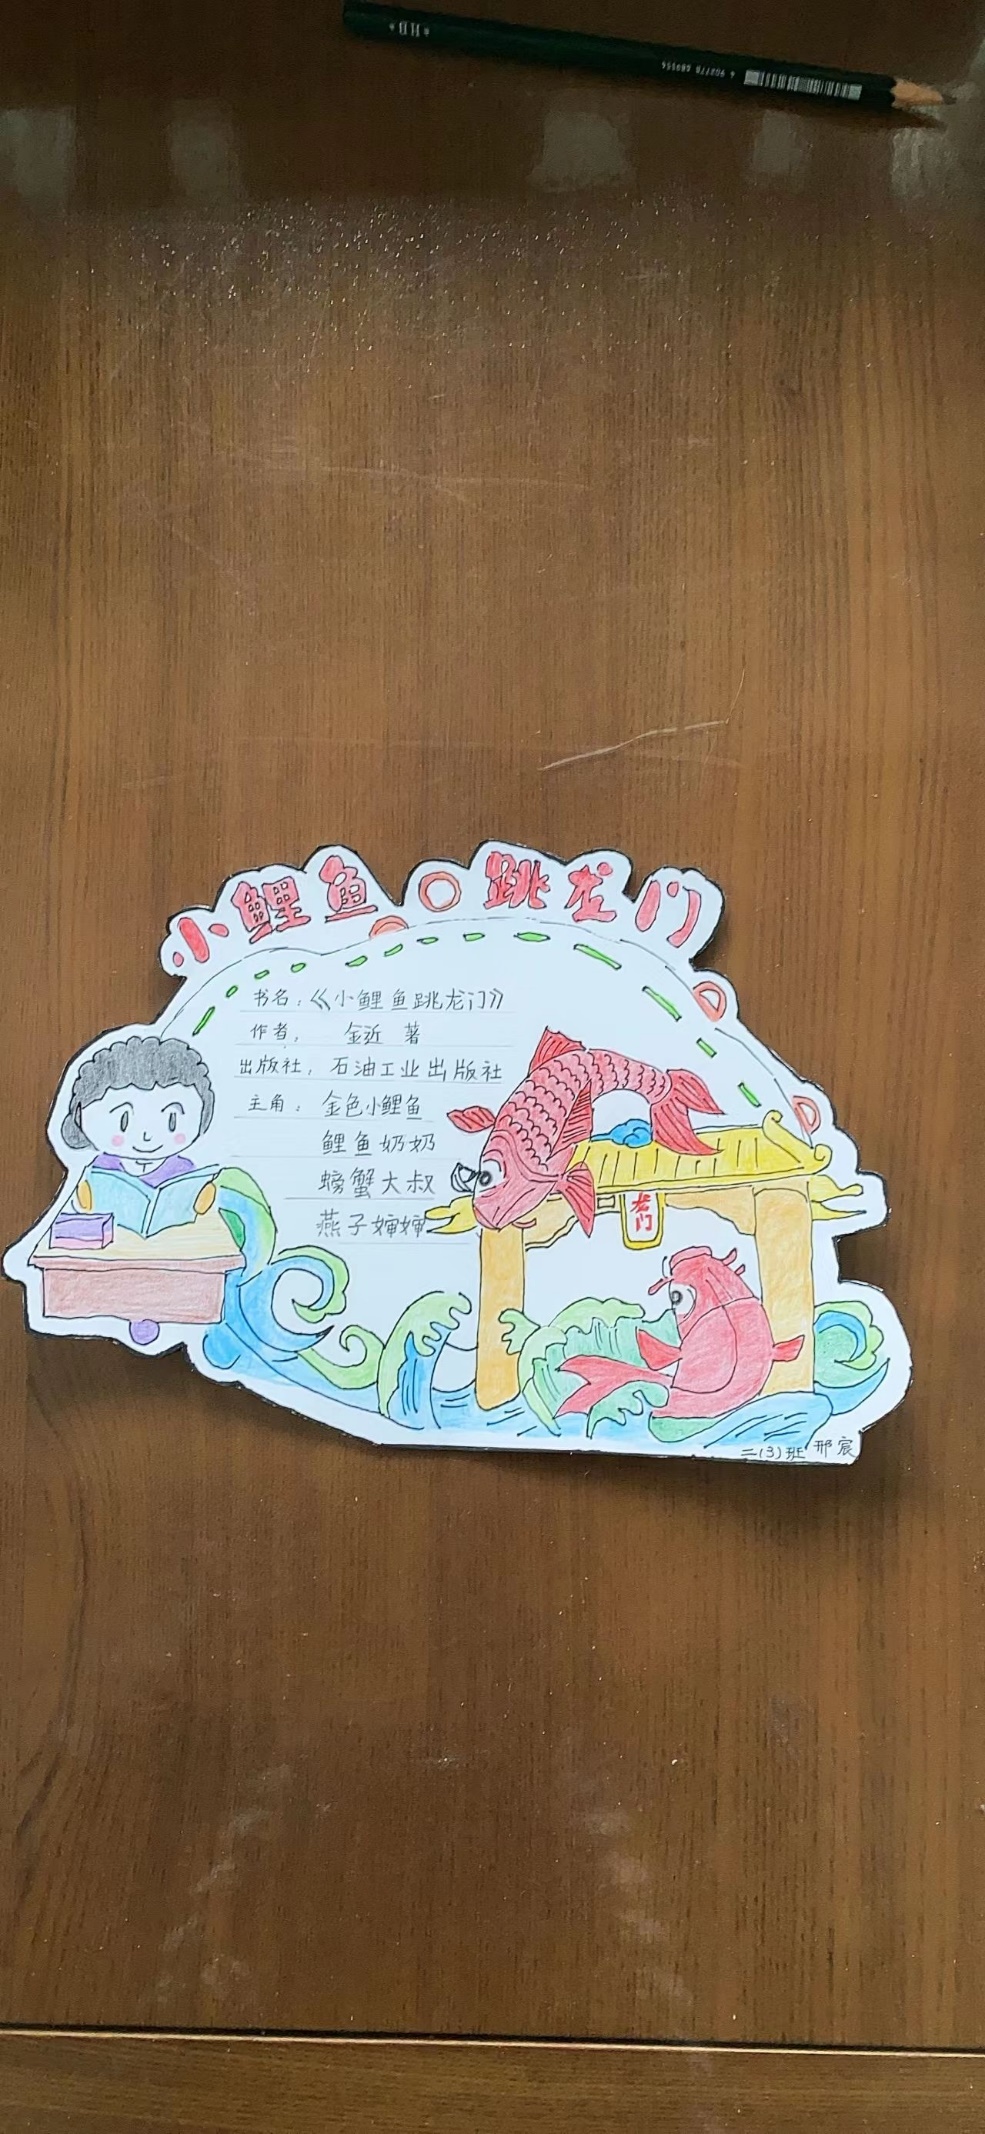 小鲤鱼跳龙门
书名：《小鲤鱼跳龙门》
作者： 金近 著
出版社： 石油工业出版社
主角： 金色小鲤鱼
鲤鱼奶奶
螃蟹大叔
燕子婶婶
龙门
二(3)班 邢宸
HB